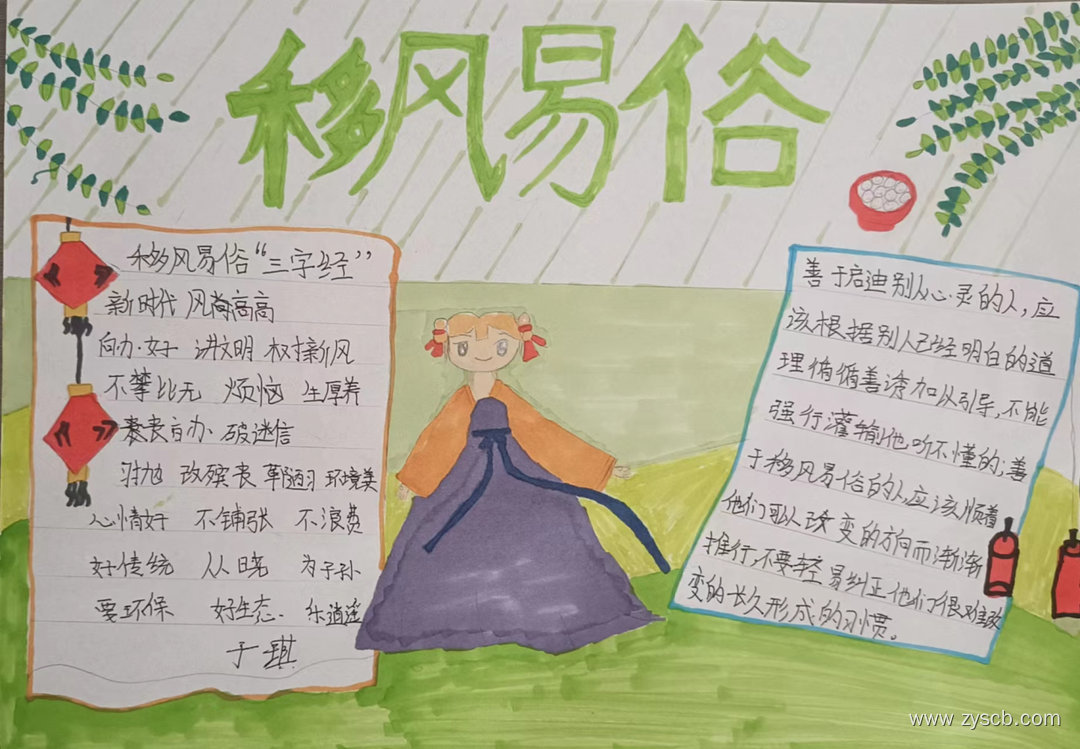 移风易俗
移风易俗“三字经”
新时代 风尚高高
向办好 讲文明 树新风
不攀比无 烦恼 生厚养
丧自办 破迷信
改殡丧 革陋习 环境美
心情好 不铺张 不浪费
好传统 从晓 为子孙
要环保 好生态 乐逍遥
于琪
善于启迪别人心灵的人，应
该根据别人已经明白的道
理循循善诱加以引导，不能
强行灌输他听不懂的；善
于移风易俗的人，应该顺着
他们可以改变的方向而渐渐
推行，不要轻易纠正他们很难改
变的长久形成的习惯。
www.zyscb.com